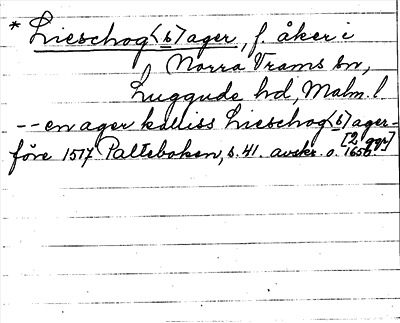 * Lieschog(b)ager, f. åker i
Norra Vrams sn,
Luggude hd, Malm. l
-- en ager kalliss Lieschog(b)ager -
[2 ggr]
före 1517 Palteboken, s. 41. avskr. o. 1650.